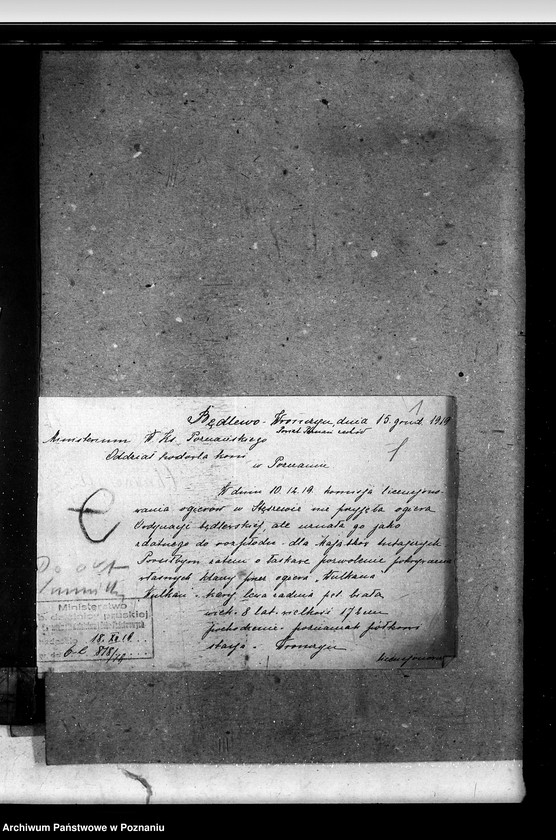 1
Będlewo-Wronczyn, dnia 15. grud. 1919
Powiat Poznań zachód
Ministerium W. Ks. Poznańskiego
Oddział hodowla koni
w Poznaniu
1
W dniu 10.12.19. komisja licencjono-
wania ogierów w Stęszewie nie przyjęła ogiera
Ordynacji będlewskiej, ale uznała go jako
zdatnego do rozpłodu - dla majątków tutejszych
Prosiłbym zatem o łaskawe pozwolenie pokrywania
własnych klaczy przez ogiera "Wulkana"
"Wulkan" - kary, lewa zadnia pęt. biała
wiek - 8 lat - wielkość 173 cm
pochodzenie - poznański półkrwi
stacja - Wronczyn
Ministerstwo
b. dzielnicy pruskiej
18.XII.19
C.L. 878/19
Archiwum Państwowe w Poznaniu